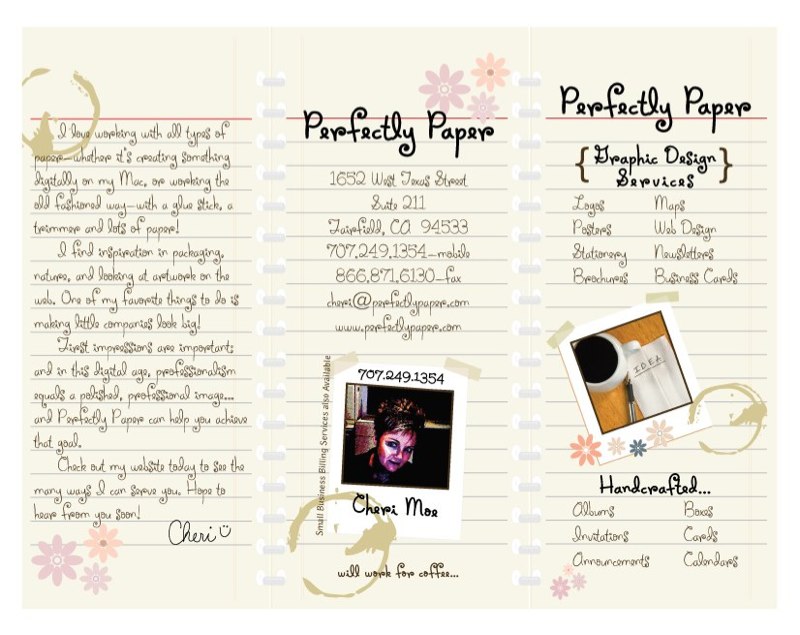 I love working with all types of
paper—whether it's creating something
digitally on my Mac, or working the
old fashioned way—with a glue stick, a
trimmer and lots of paper!
I find inspiration in packaging,
nature, and looking at artwork on the
web. One of my favorite things to do is
making little companies look big!
First impressions are important;
and in this digital age, professionalism
equals a polished, professional image...
and Perfectly Paper can help you achieve
that goal.
Check out my website today to see the
many ways I can serve you. Hope to
hear from you soon!
Cheri
Perfectly Paper
1652 West Texas Street
Suite 211
Fairfield, CA 94533
707.249.1354—mobile
866.871.6130—fax
cheri@perfectlypaper.com
www.perfectlypaper.com
Small Business Billing Services also Available
707.249.1354
Cheri Moe
will work for coffee...
Perfectly Paper
{Graphic Design
Services}
Logos Maps
Posters Web Design
Stationery Newsletters
Brochures Business Cards
IDEA
Handcrafted...
Albums Boxes
Invitations Cards
Announcements Calendars